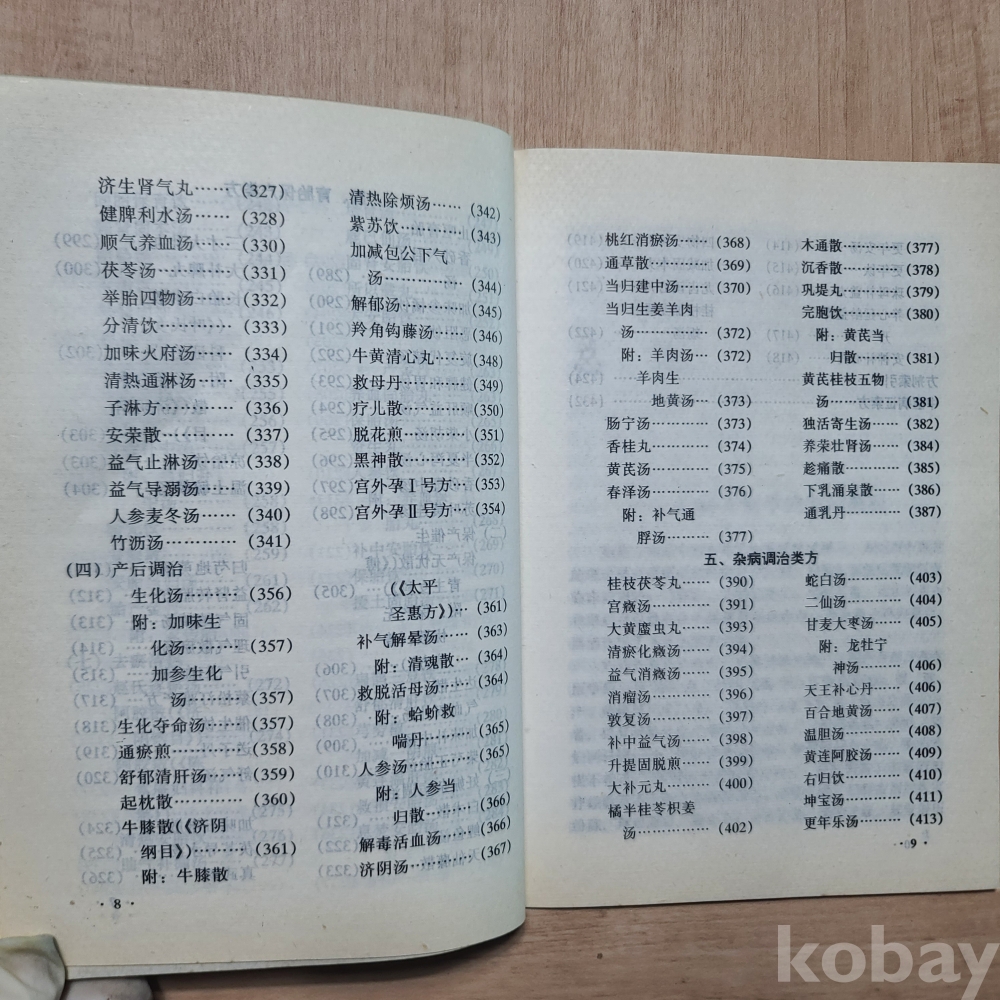 济生肾气丸……(327)
健脾利水汤……(328)
顺气养血汤……(330)
茯苓汤…………(331)
举胎四物汤……(332)
分清饮…………(333)
加味火府汤……(334)
清热通淋汤……(335)
子淋方…………(336)
安荣散…………(337)
益气止淋汤……(338)
益气导溺汤……(339)
人参麦冬汤……(340)
竹沥汤…………(341)
(四)产后调治
生化汤………(356)
附：加味生
化汤……(357)
加参生化
汤………(357)
生化夺命汤……(357)
通瘀煎…………(358)
舒郁清肝汤……(359)
起枕散…………(360)
牛膝散(《济阴
纲目》)………(361)
附：牛膝散
清热除烦汤……(342)
紫苏饮…………(343)
加减包公下气
汤……………(344)
解郁汤…………(345)
羚角钩藤汤……(346)
牛黄清心丸……(348)
救母丹…………(349)
疗儿散…………(350)
脱花煎…………(351)
黑神散…………(352)
宫外孕Ⅰ号方…(353)
宫外孕Ⅱ号方…(354)
(《太平
圣惠方》)…(361)
补气解晕汤……(363)
附：清魂散…(364)
救脱活母汤……(364)
附：蛤蚧救
喘丹………(365)
人参汤…………(365)
附：人参当
归散………(366)
解毒活血汤……(366)
济阴汤…………(367)
· 8 ·
桃红消瘀汤……(368)
通草散…………(369)
当归建中汤……(370)
当归生姜羊肉
汤…………(372)
附：羊肉汤…(372)
羊肉生
地黄汤…(373)
肠宁汤…………(373)
香桂丸…………(374)
黄芪汤…………(375)
春泽汤…………(376)
附：补气通
脬汤………(377)
木通散…………(377)
沉香散…………(378)
巩堤丸…………(379)
完胞饮…………(380)
附：黄芪当
归散………(381)
黄芪桂枝五物
汤……………(381)
独活寄生汤……(382)
养荣壮肾汤……(384)
趁痛散…………(385)
下乳涌泉散……(386)
通乳丹…………(387)
五、杂病调治类方
桂枝茯苓丸……(390)
宫癥汤…………(391)
大黄䗪虫丸……(393)
清瘀化癥汤……(394)
益气消癥汤……(395)
消瘤汤…………(396)
敦复汤…………(397)
补中益气汤……(398)
升提固脱煎……(399)
大补元丸………(400)
橘半桂苓枳姜
汤……………(402)
蛇白汤…………(403)
二仙汤…………(404)
甘麦大枣汤……(405)
附：龙牡宁
神汤………(406)
天王补心丹……(406)
百合地黄汤……(407)
温胆汤…………(408)
黄连阿胶汤……(409)
右归饮…………(410)
坤宝汤…………(411)
更年乐汤………(413)
· 9 ·
kobay